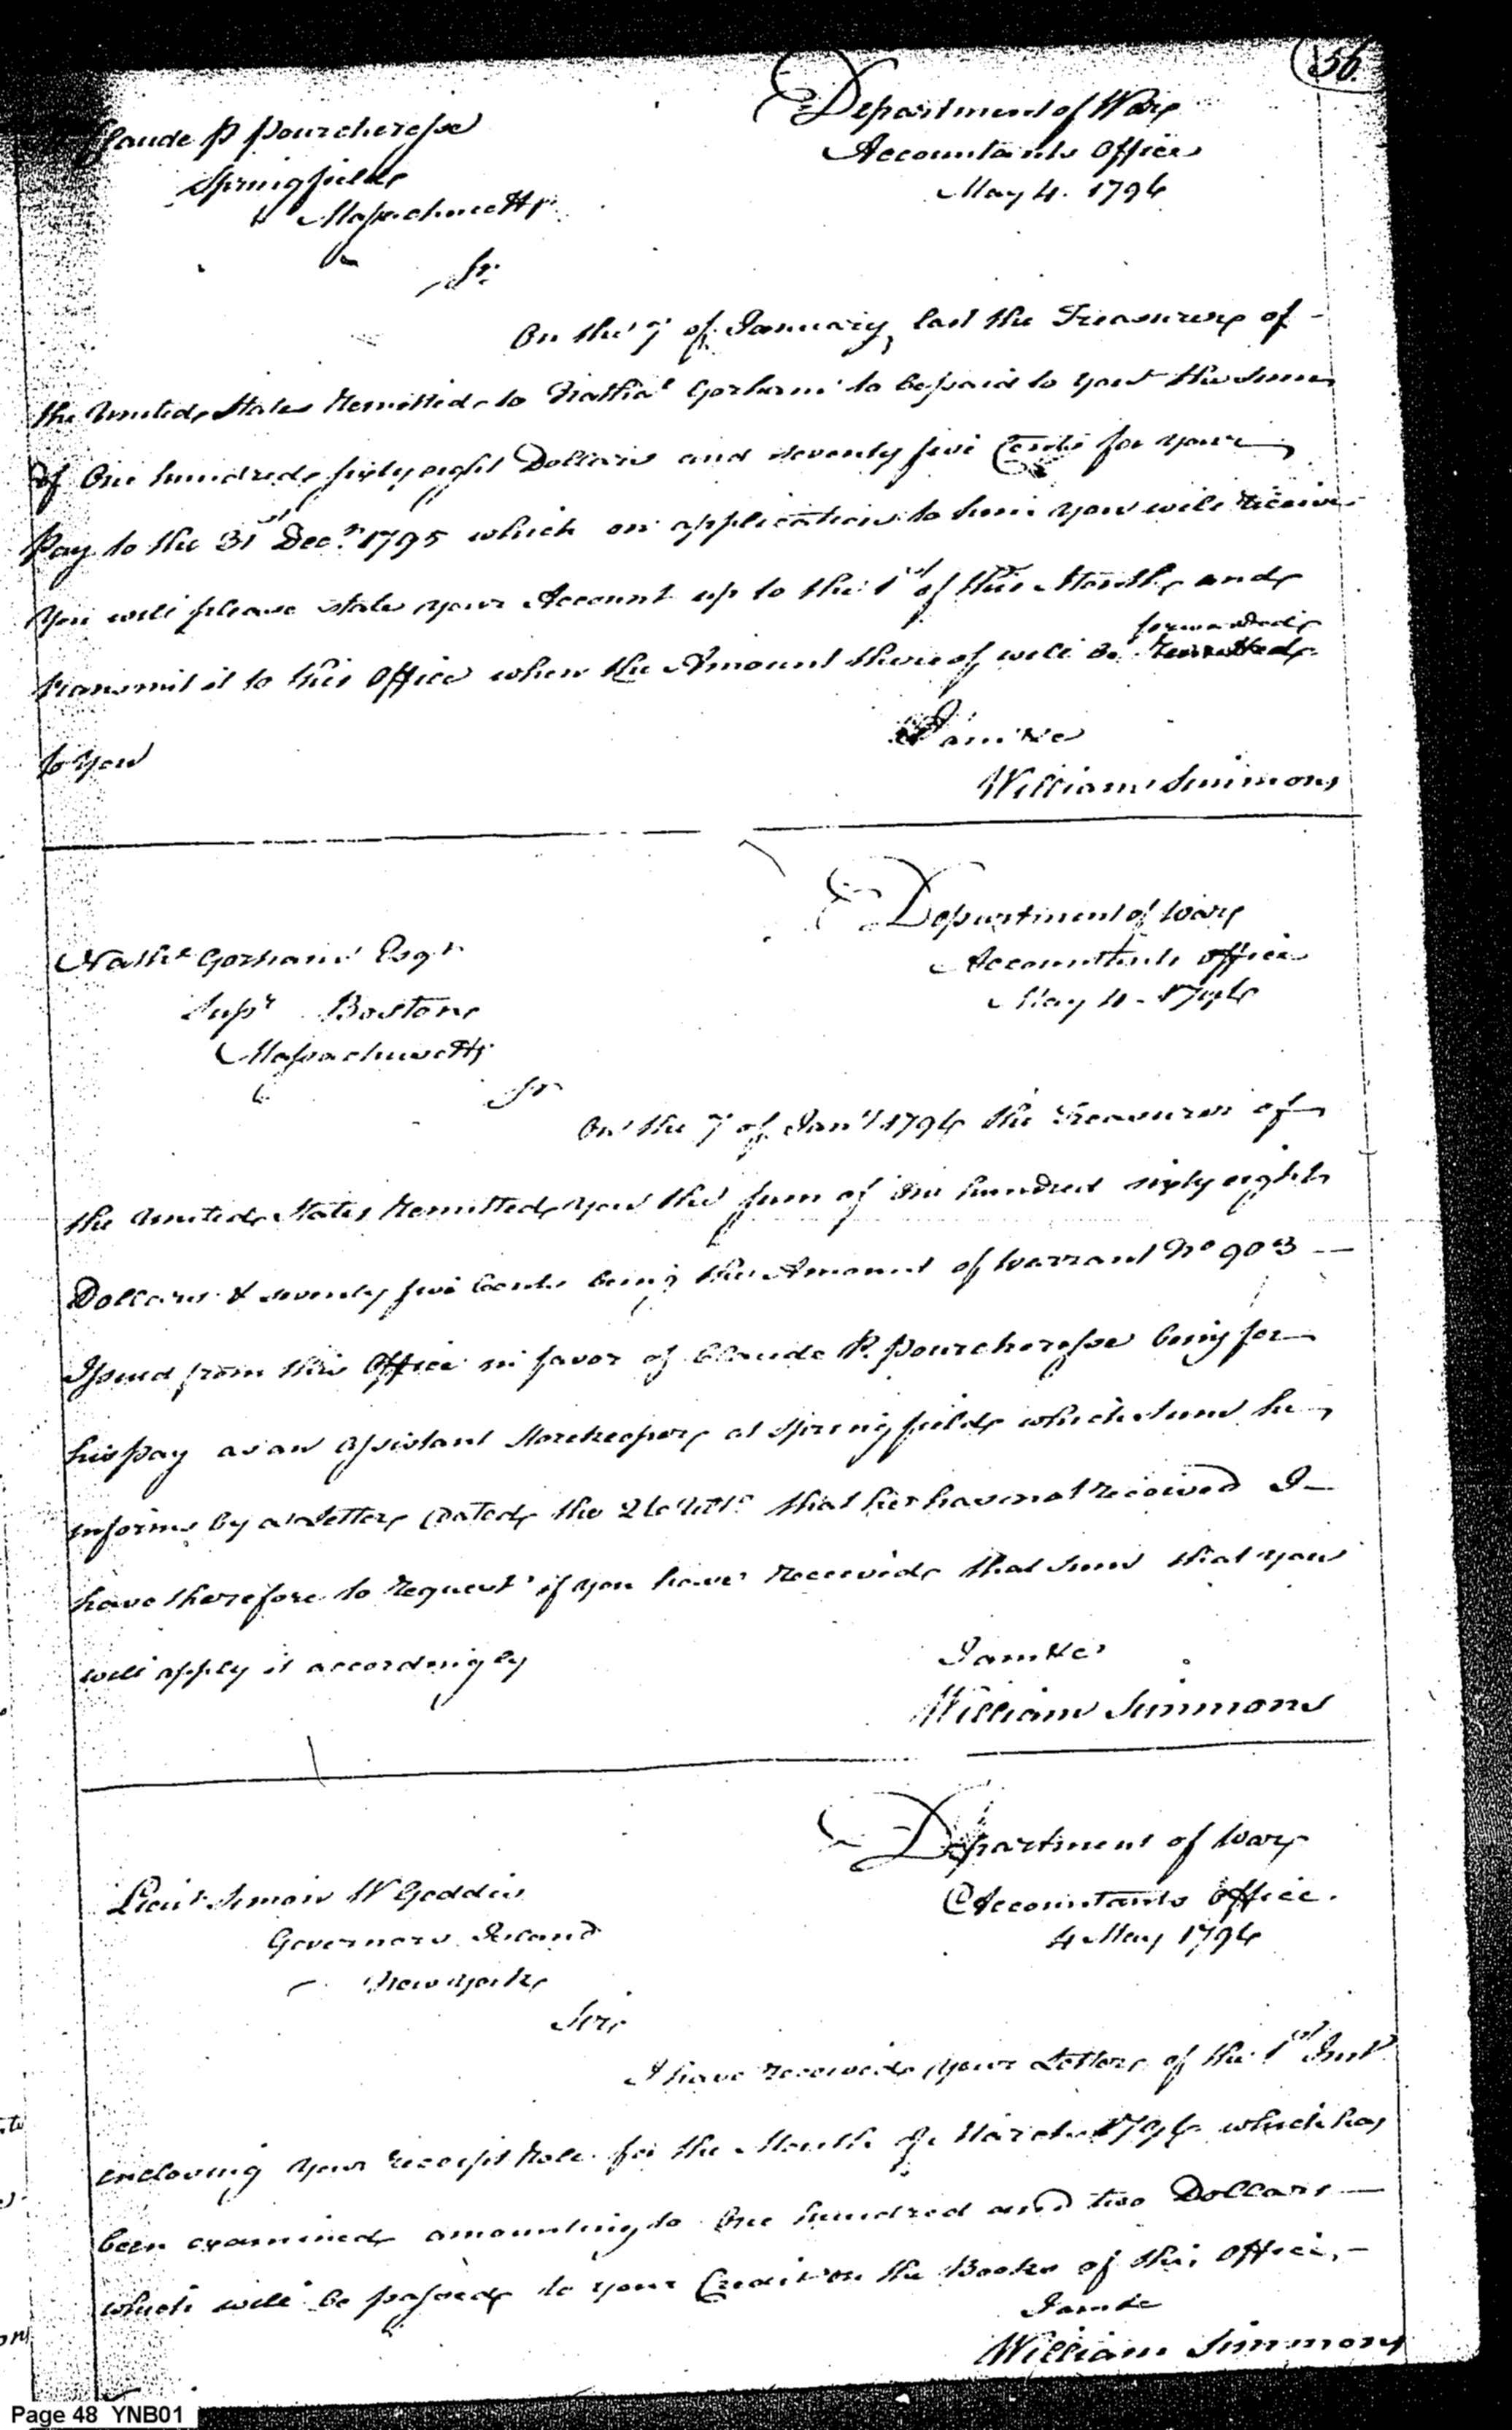 56.
Claude P Pourcheresse
Springfield
Massachusetts
Department of War
Accountants Office
May 4. 1796
Sr.
On the 7 of January last the Treasurer of
the United States Remitted to Nathal Gorham to be paid to you the sum
of One hundred sixty eight Dollars and seventy five Cents for your
Pay to the 31st Decr. 1795 which on application to him you will receive
You will please state your Account up to the 1st of this Month and
transmit it to this Office when the Amount thereof will be Remitted forwarded
to you
I am &c
William Simmons
Nathl Gorham Esqr
Supr Boston
Massachusetts
Department of War
Accountants office
May 4 - 1796
Sr
On the 7 of Jany 1796 the Treasurer of
the United States Remitted you the sum of One hundred sixty eight
Dollars & seventy five Cents being the Amount of Warrant No 903
Issued from this Office in favor of Claude P. Pourcheresse being for
his pay as an assistant Storekeeper at Springfield which sum he
informs by a Letter dated the 26 Ulto that he has not received I
have therefore to request if you have received that sum that you
will apply it accordingly
I am &c
William Simmons
Lieut Simon W Geddis
Governors Island
New York
Department of War
Accountants office.
4 May 1796
Sir
I have received your Letter of the 1st Inst
enclosing your receipt Role for the Month of March 1796 which has
been examined amounting to One hundred and two Dollars
which will be passed to your Credit on the Books of this Office,
I am &c
William Simmons
Page 48 YNB01